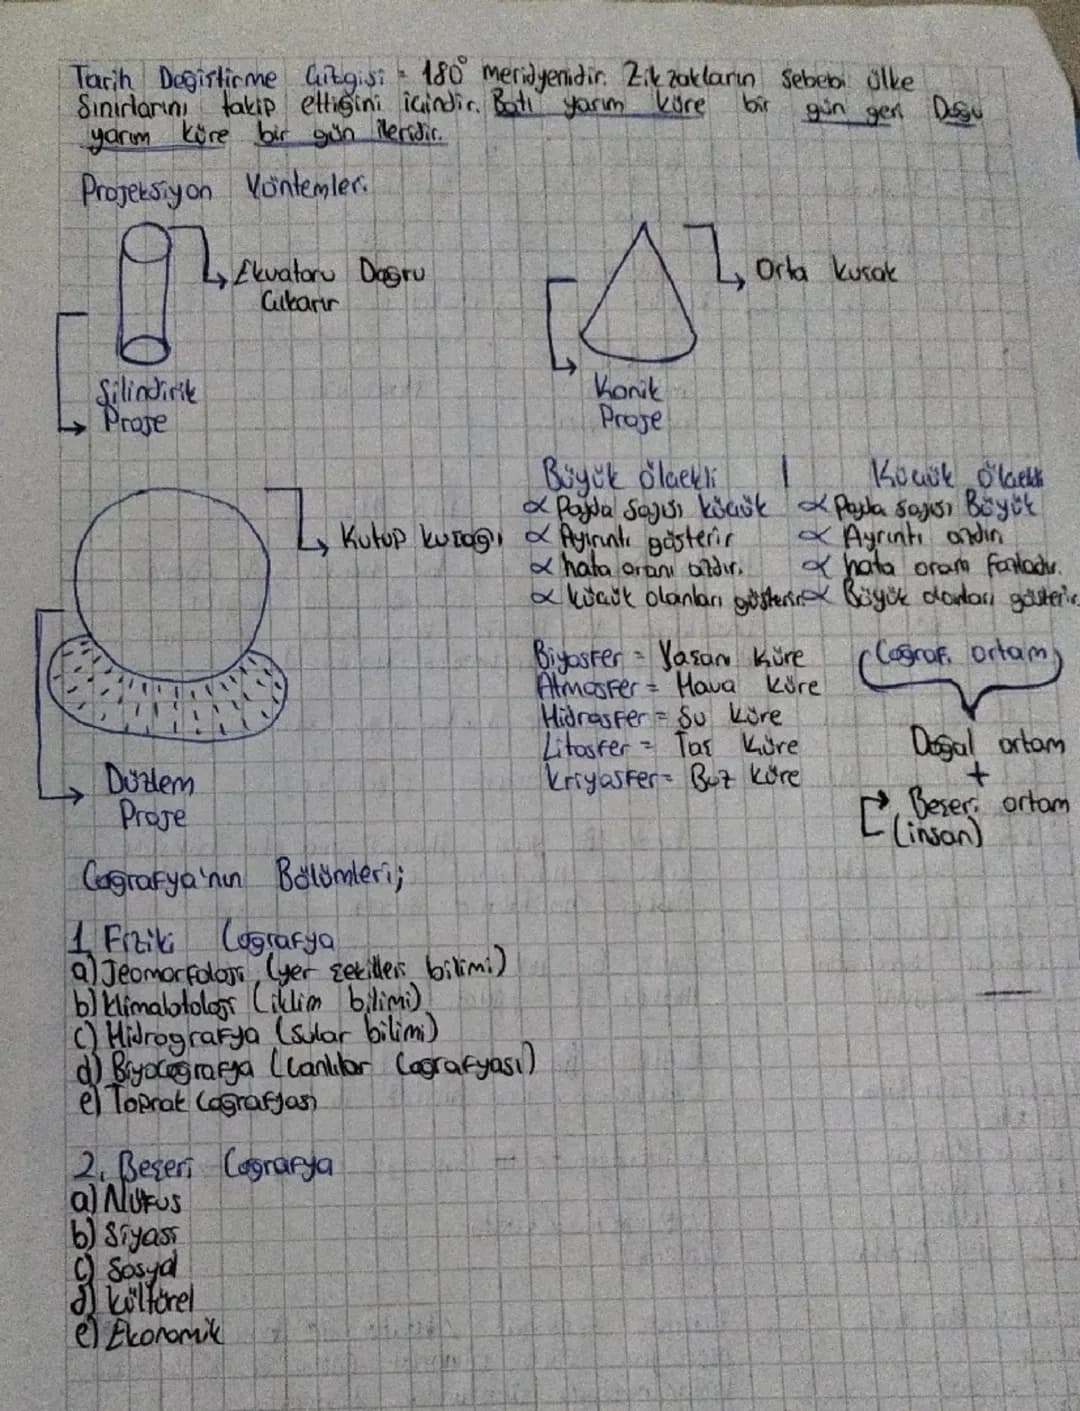 Tarih Değiştirme Çizgisi = 180° meridyenidir. Zikzakların sebebi ülke
Sınırlarını takip ettiğini içindir. Batı yarım küre bir gün geri Doğu
yarım küre bir gün ileridir.
Projeksiyon Yöntemleri
Ekvatoru Doğru
Çıkarır
Silindirik
Proje
Orta kuşak
Konik
Proje
Kutup kuşağı
Düzlem
Proje
Büyük ölçekli | Küçük ölçekli
α Payda sayısı küçük α Payda sayısı Büyük
α Ayırıntı gösterir α Ayrıntı azdır
α hata oranı azdır. α hata oranı fazladır.
α küçük olanları gösterir α Büyük olanları gösterir.
Biyosfer = Yaşam Küre
Atmosfer = Hava Küre
Hidrosfer = Su Küre
Litosfer = Taş Küre
Kriyosfer = Buz küre
Coğrafi ortam
Doğal ortam
+
Beşeri ortam
(insan)
Coğrafya'nın Bölümleri;
1. Fiziki Coğrafya
a) Jeomorfoloji (yer şekilleri bilimi)
b) Klimalotoloji (iklim bilimi)
c) Hidrografya (sular bilimi)
d) Biyocoğrafya (canlılar Coğrafyası)
e) Toprak Coğrafyası
2. Beşeri Coğrafya
a) Nüfus
b) Siyasi
c) Sosyal
d) kültürel
e) Ekonomik